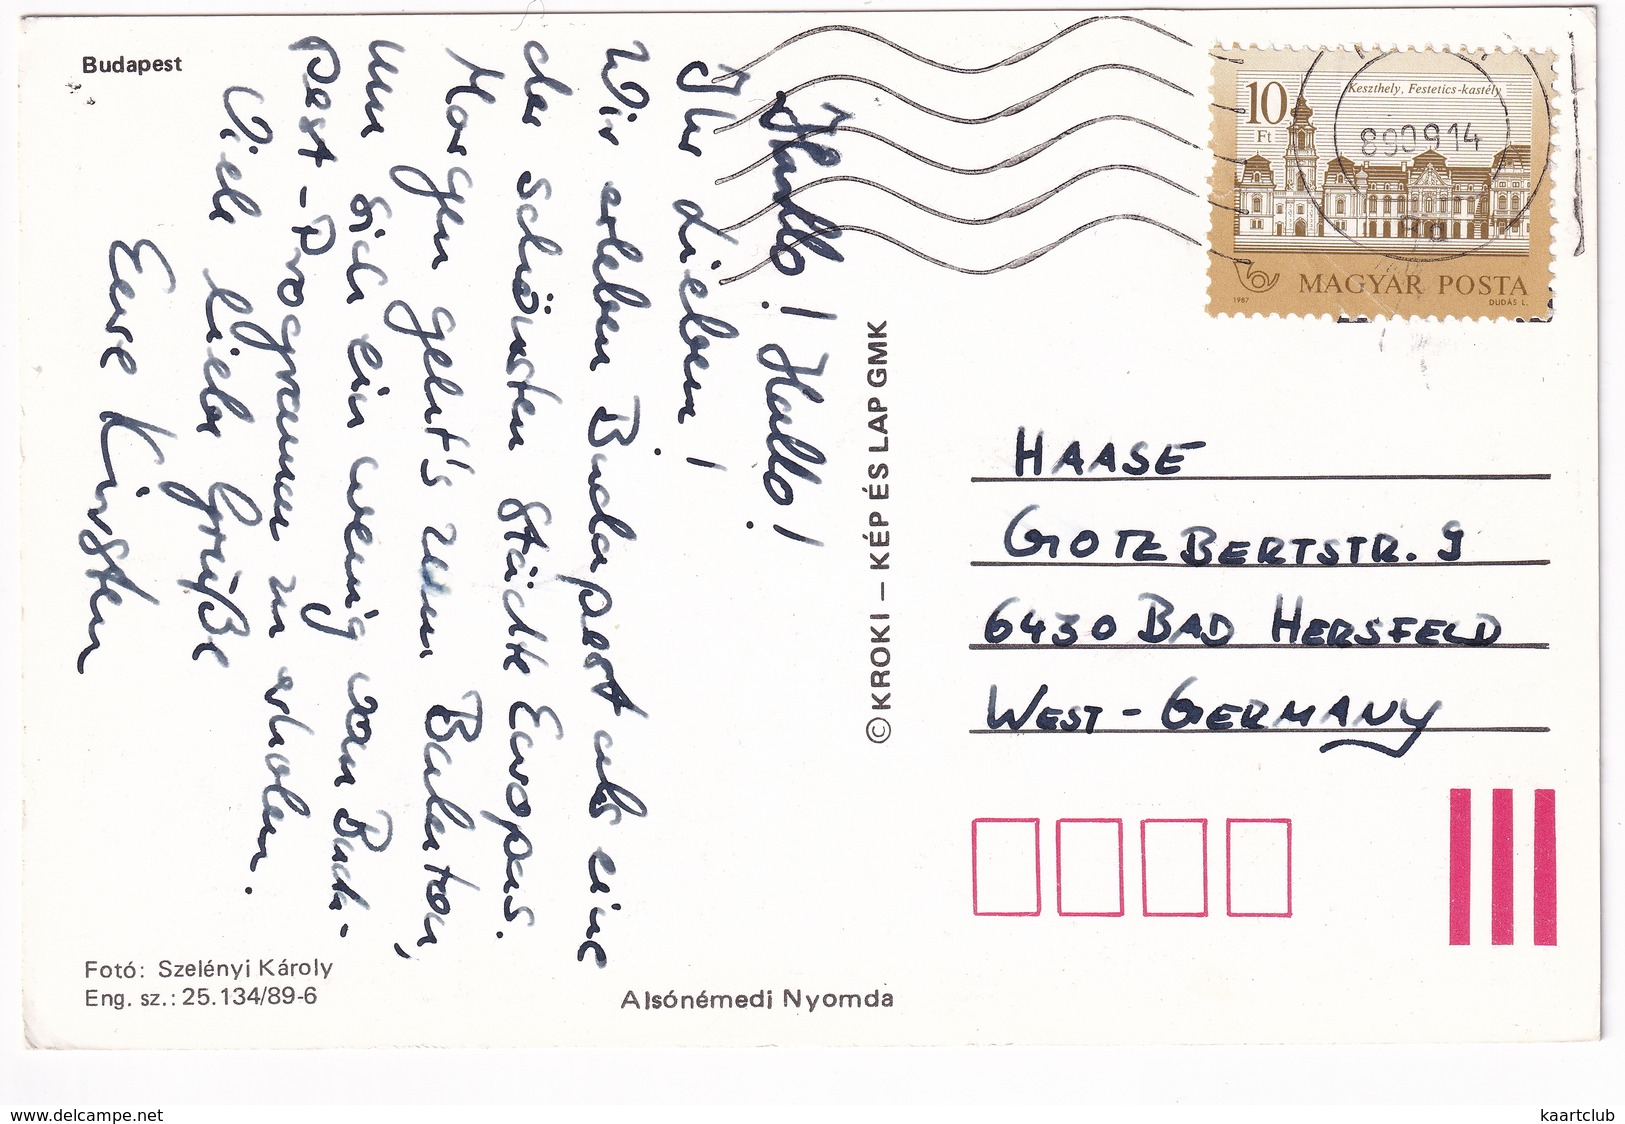 Budapest
Hallo! Hallo!
Ihr Lieben!
Wir erleben Budapest als eine
der schönsten Städte Europas.
Morgen geht's zum Balaton,
um sich ein wenig vom Buda-
pest-Programm zu erholen.
Viele liebe Grüße
Eure Kirsten
Fotó: Szelényi Károly
Eng. sz.: 25.134/89-6
Alsónémedi Nyomda
© KROKI – KÉP ÉS LAP GMK
10
Ft
Keszthely, Festetics-kastély
890914
MAGYAR POSTA
1987
DUDÁS L.
HAASE
GOTZBERTSTR. 9
6430 BAD HERSFELD
WEST-GERMANY
www.delcampe.net
kaartclub